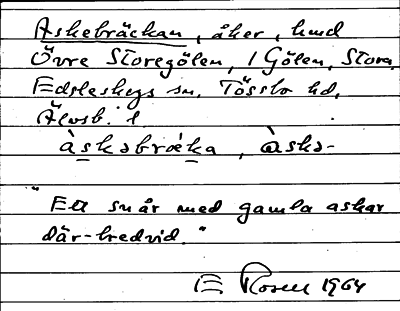 Askebräckan, åker, hmd
Övre Storegölen, 1 Gölen, Stora.
Edsleskogs sn. Tössbo hd,
Älvsb. l.
àskəbræka, àskə-
"Ett snår med gamla askar
där-bredvid."
E Rosell 1964